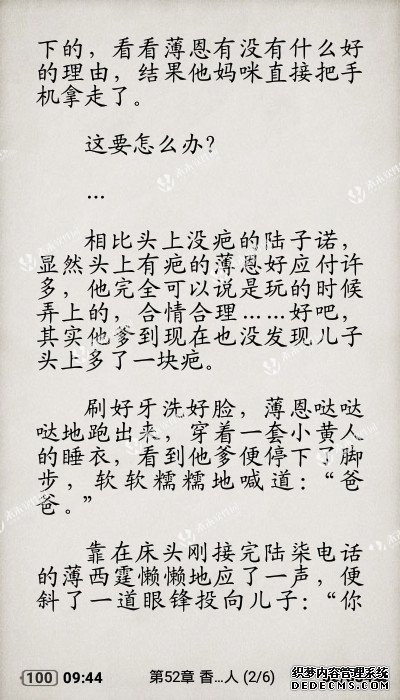 下的，看看薄恩有没有什么好
的理由，结果他妈咪直接把手
机拿走了。
这要怎么办？
…
相比头上没疤的陆子诺，
显然头上有疤的薄恩好应付许
多，他完全可以说是玩的时候
弄上的，合情合理……好吧，
其实他爹到现在也没发现儿子
头上多了一块疤。
刷好牙洗好脸，薄恩哒哒
哒地跑出来，穿着一套小黄人
的睡衣，看到他爹便停下了脚
步，软软糯糯地喊道：“爸
爸。”
靠在床头刚接完陆柒电话
的薄西霆懒懒地应了一声，便
斜了一道眼锋投向儿子：“你
100 09:44 第52章 香…人 (2/6)
织梦内容管理系统
DEDECMS.COM